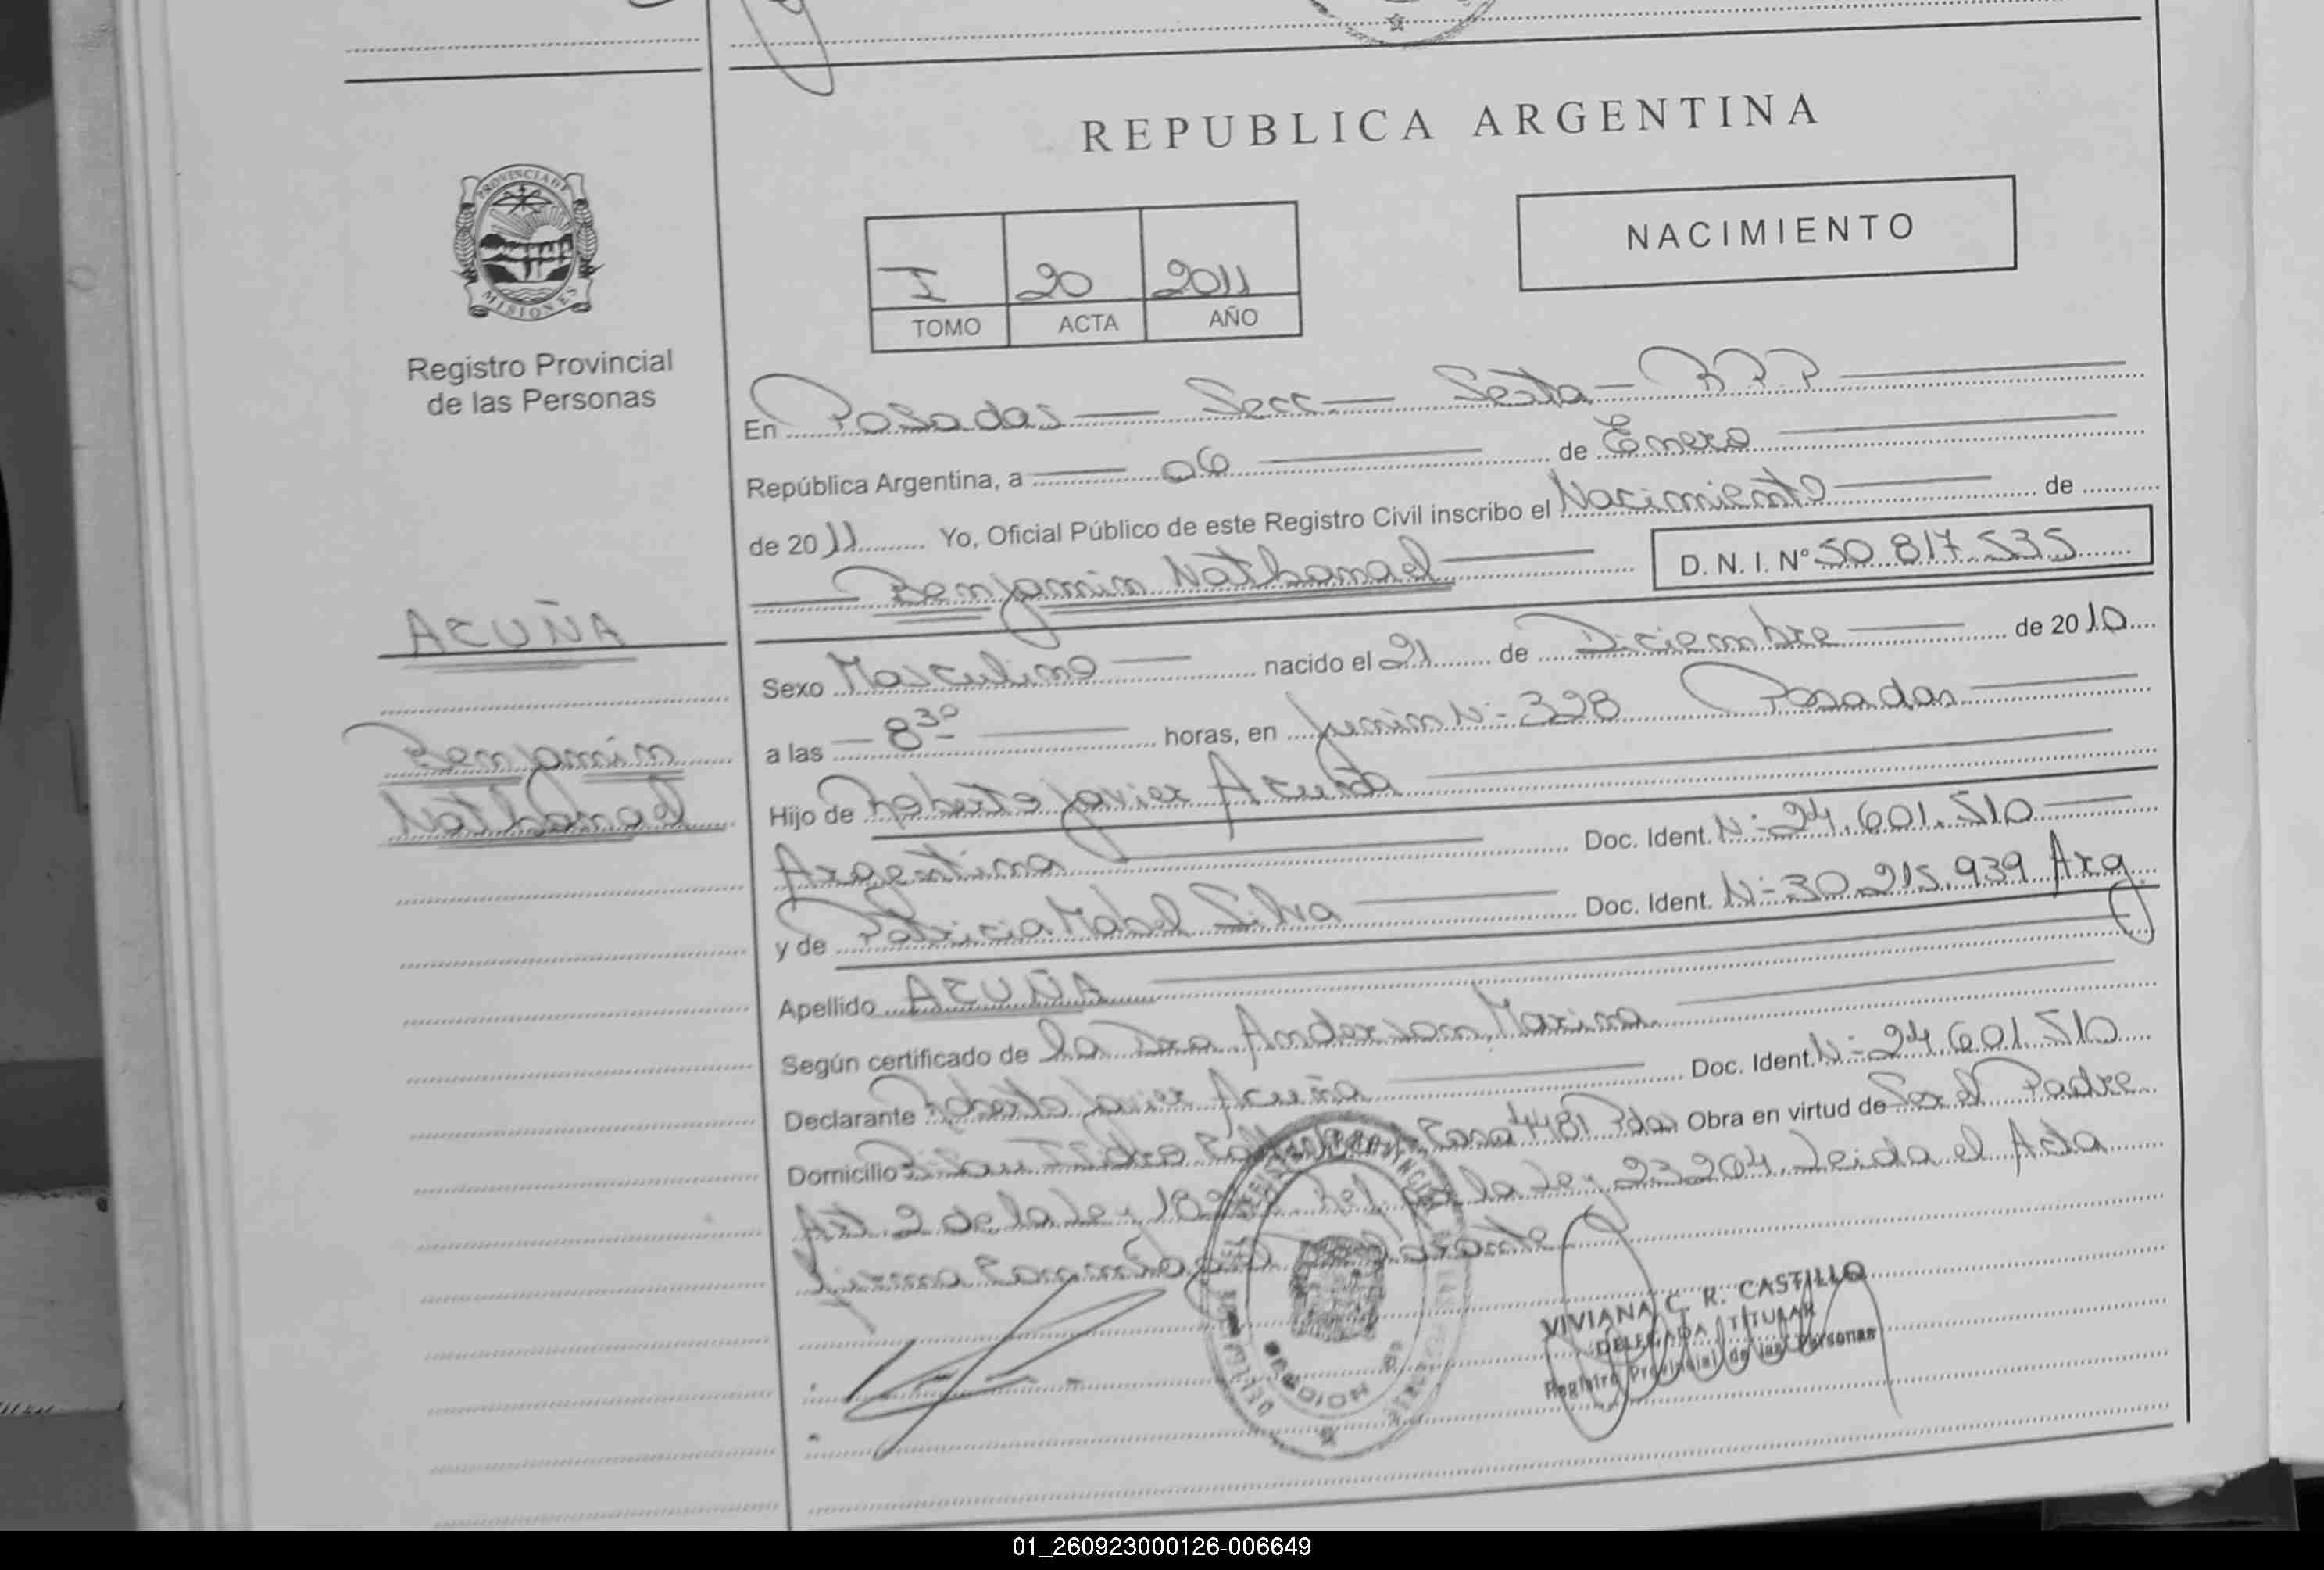 REPUBLICA ARGENTINA
NACIMIENTO
PROVINCIA DE
MISIONES
Registro Provincial
de las Personas
I 20 2011
TOMO ACTA AÑO
En Posadas — Secc — Sexta — R.P.P
República Argentina, a 06 de Enero
de 2011 Yo, Oficial Público de este Registro Civil inscribo el Nacimiento de
Benjamin Nathanael D. N. I. Nº 50 817 535
ACUÑA
Benjamin
Nathanael
Sexo Masculino nacido el 21 de Diciembre de 2010
a las 8 30 horas, en Junin N: 328 Posadas
Hijo de Javier Acuña
Argentina Doc. Ident. N: 24.601.510
y de Patricia Mabel Silva Doc. Ident. N: 30.215.939 Arg
Apellido ACUÑA
Según certificado de la Dra. Anderson, Marina
Declarante Javier Acuña Doc. Ident. N: 24.601.510
Domicilio 1844 Pdas Obra en virtud de Ser el Padre
Art. 2 de la Ley y el de la Ley 23204. Leida el Acta
VIVIANA C. R. CASTILLO
DELEGADA TITULAR
Registro Provincial de las Personas
01_260923000126-006649